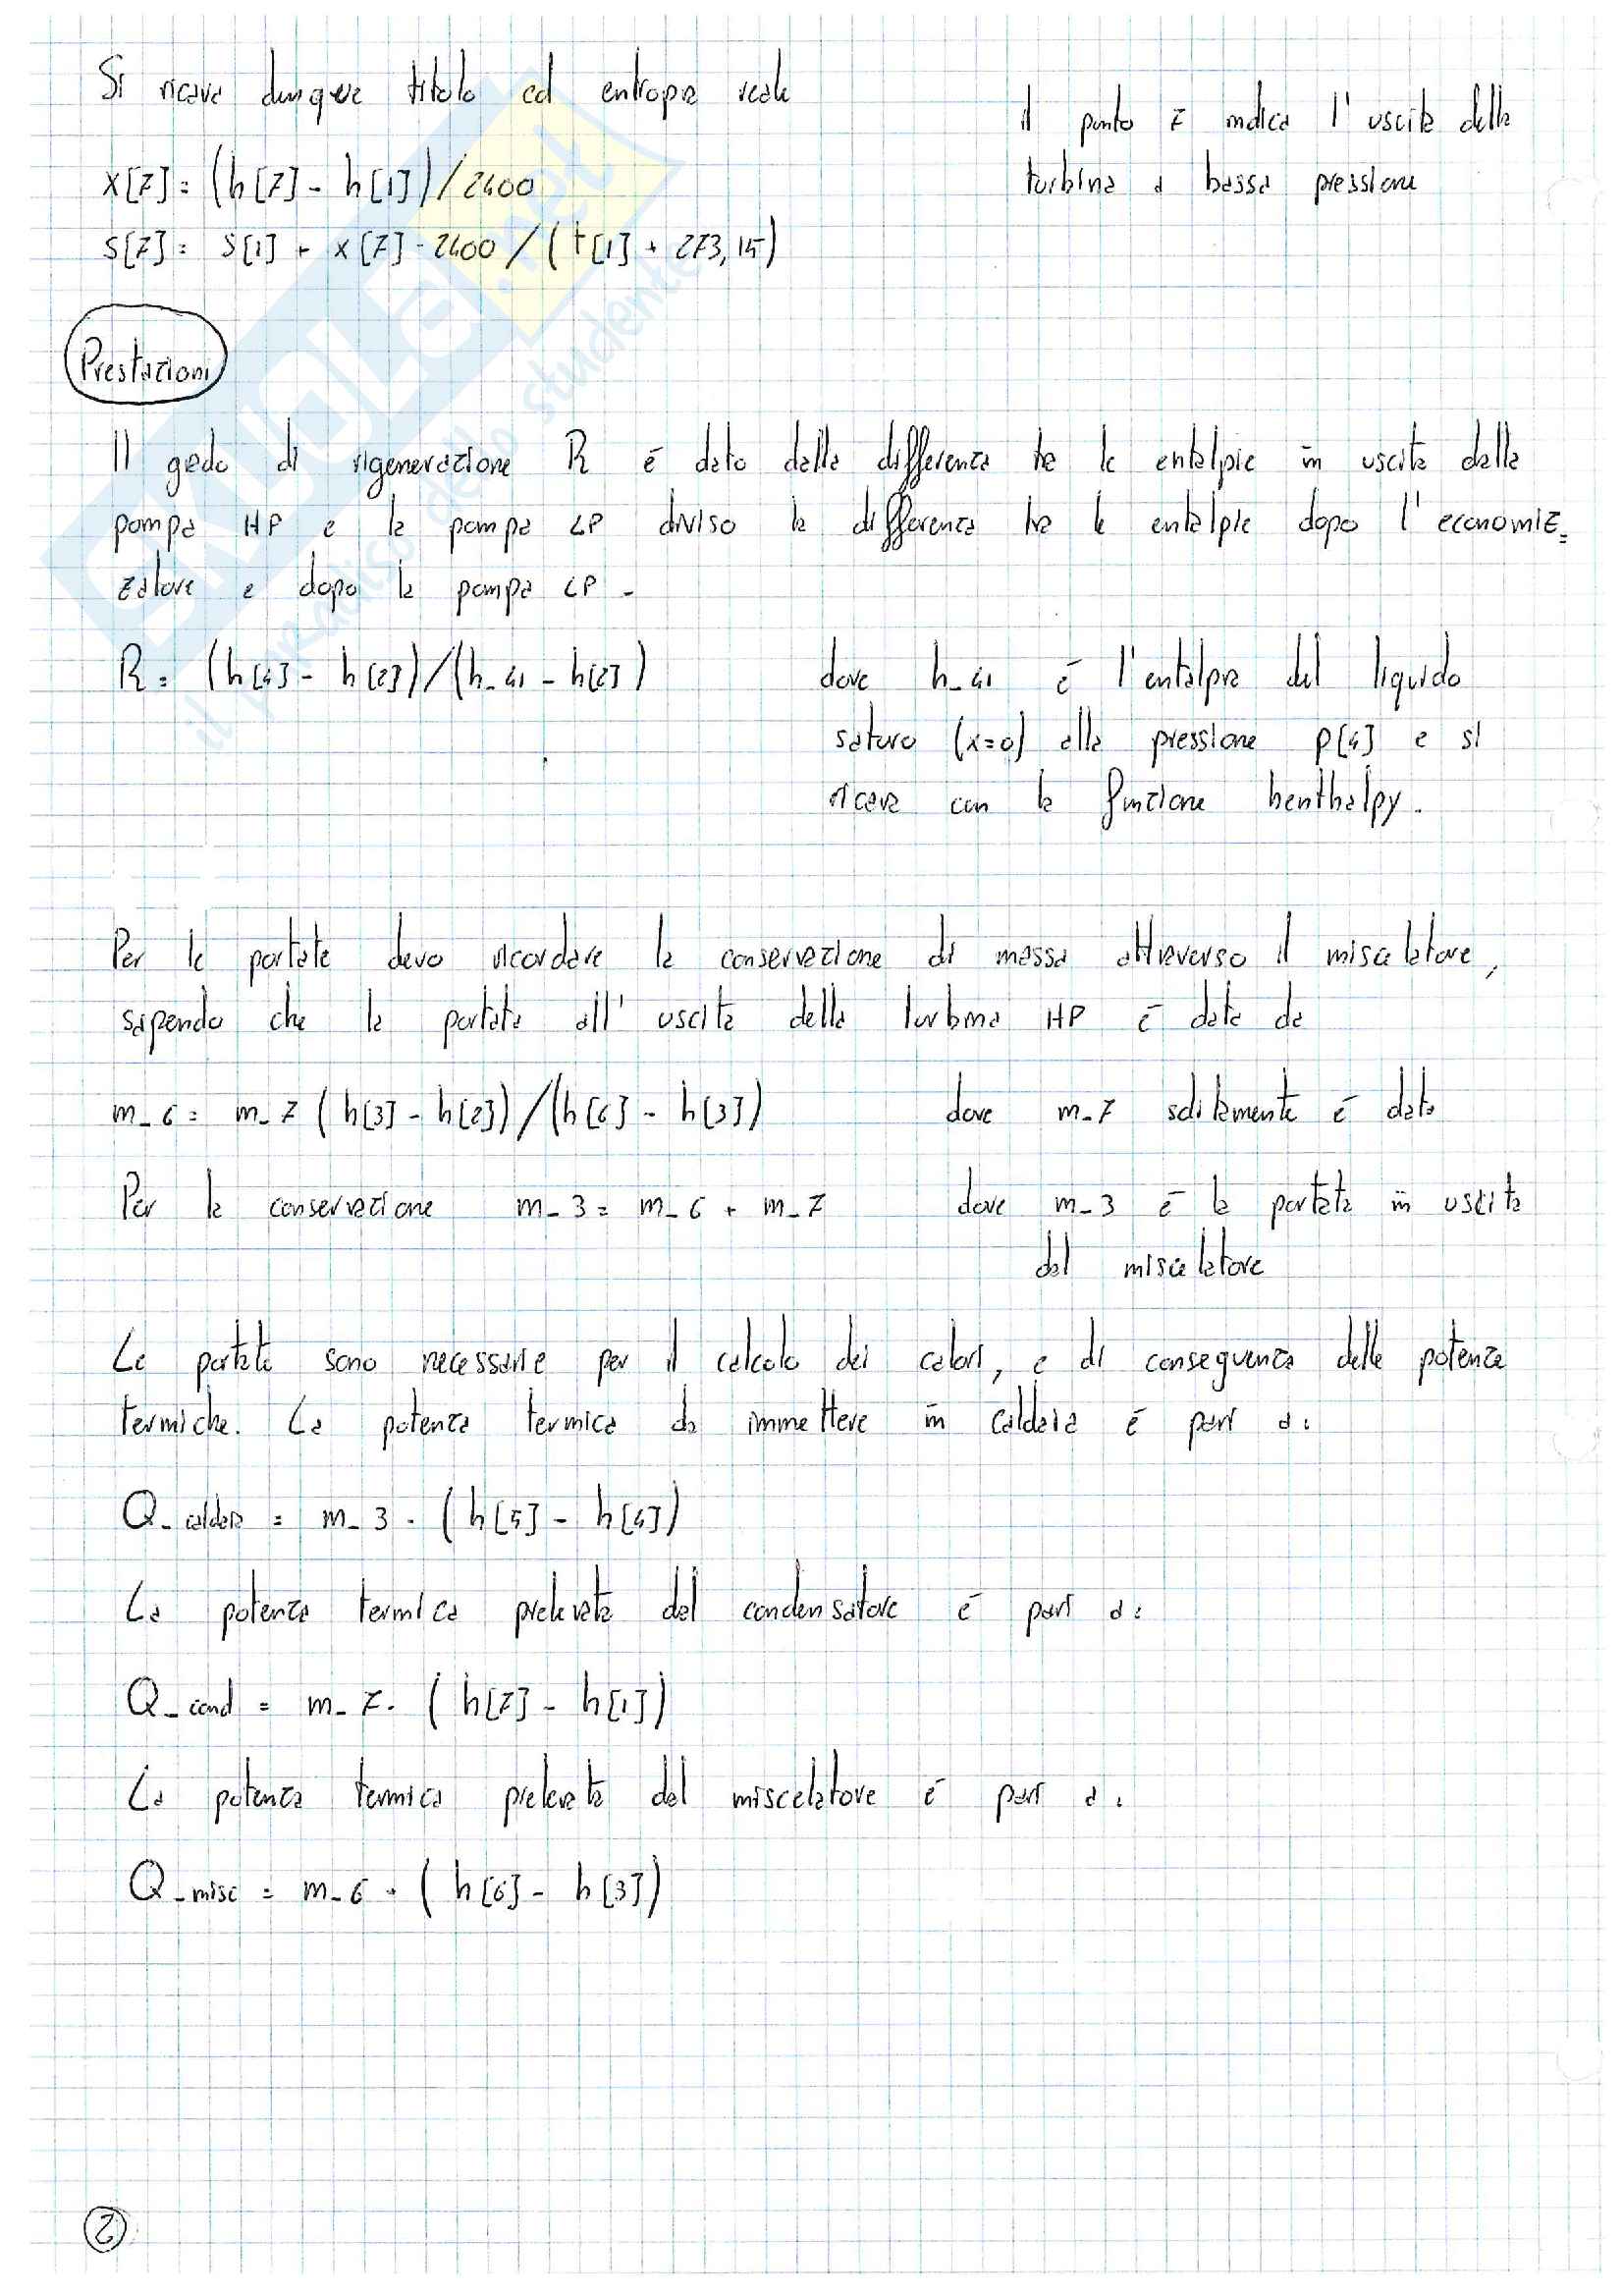 Si ricava dunque titolo ed entropia reale
il punto 7 indica l'uscita della
turbina a bassa pressione
x[7] = (h[7] - h[1]) / 2400
s[7] = s[1] + x[7] · 2400 / (t[1] + 273,15)
Prestazioni
Il grado di rigenerazione R è dato dalla differenza tra le entalpie in uscita dalla
pompa HP e la pompa LP diviso la differenza tra le entalpie dopo l'economiz=
zatore e dopo la pompa LP.
R = (h[4] - h[2]) / (h_41 - h[2])
dove h_41 è l'entalpia del liquido
saturo (x=0) alla pressione p[4] e si
ricava con la funzione henthalpy.
Per le portate devo ricordare la conservazione di massa attraverso il miscelatore,
sapendo che la portata all'uscita della turbina HP è data da
m_6 = m_7 (h[3] - h[2]) / (h[6] - h[3]) dove m_7 solitamente è data
Per la conservazione m_3 = m_6 + m_7 dove m_3 è la portata in uscita
dal miscelatore
Le portate sono necessarie per il calcolo dei calori, e di conseguenza delle potenze
termiche. La potenza termica da immettere in caldaia è pari a:
Q_caldaia = m_3 · (h[5] - h[4])
La potenza termica prelevata dal condensatore è pari a:
Q_cond = m_7 · (h[7] - h[1])
La potenza termica prelevata dal miscelatore è pari a:
Q_misc = m_6 · (h[6] - h[3])
2